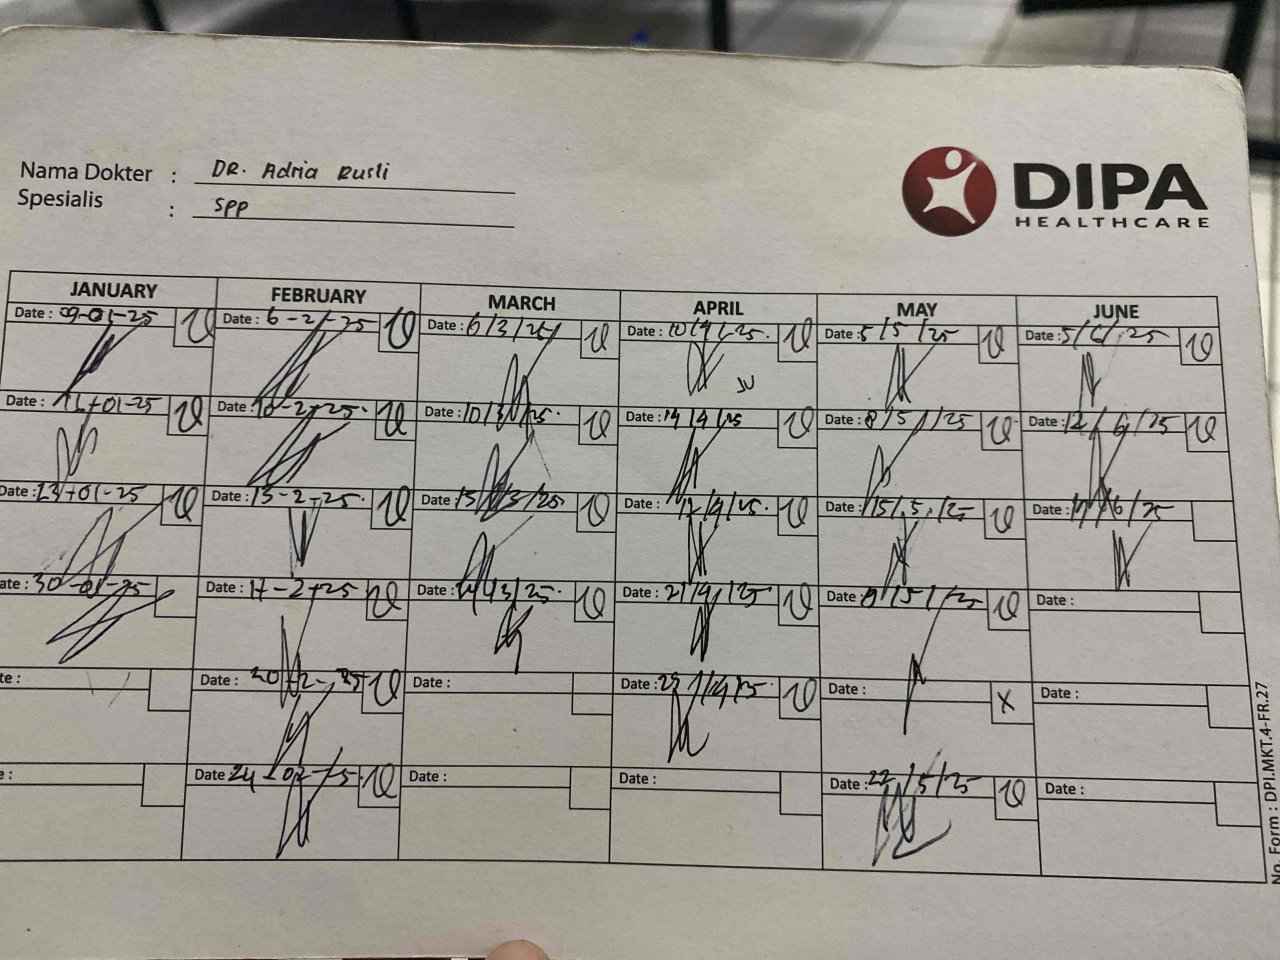 Nama Dokter : DR. Adria Rusli
Spesialis : SPP
DIPA
HEALTHCARE
JANUARY FEBRUARY MARCH APRIL MAY JUNE
Date : 09-01-25 Date : 6-2-25 Date : 6/3/25 Date : 10/4/25. Date : 5/5/25 Date : 5/6/25
Date : 16-01-25 Date : 10-2-25. Date : 10/3/25. Date : 14/4/25 Date : 8/5/25 Date : 12/6/25
Date : 23-01-25 Date : 13-2-25. Date : 13/3/25. Date : 17/4/25. Date : 15/5/25 Date : 17/6/25
ate : 30-01-25 Date : 17-2-25 Date : Date : 21/4/25 Date : Date :
te : Date : 20-2-25 Date : Date : Date : X Date :
e : Date : 24-02-25. Date : Date : Date : 22/5/25 Date :
No. Form : DPI.MKT.4-FR.27